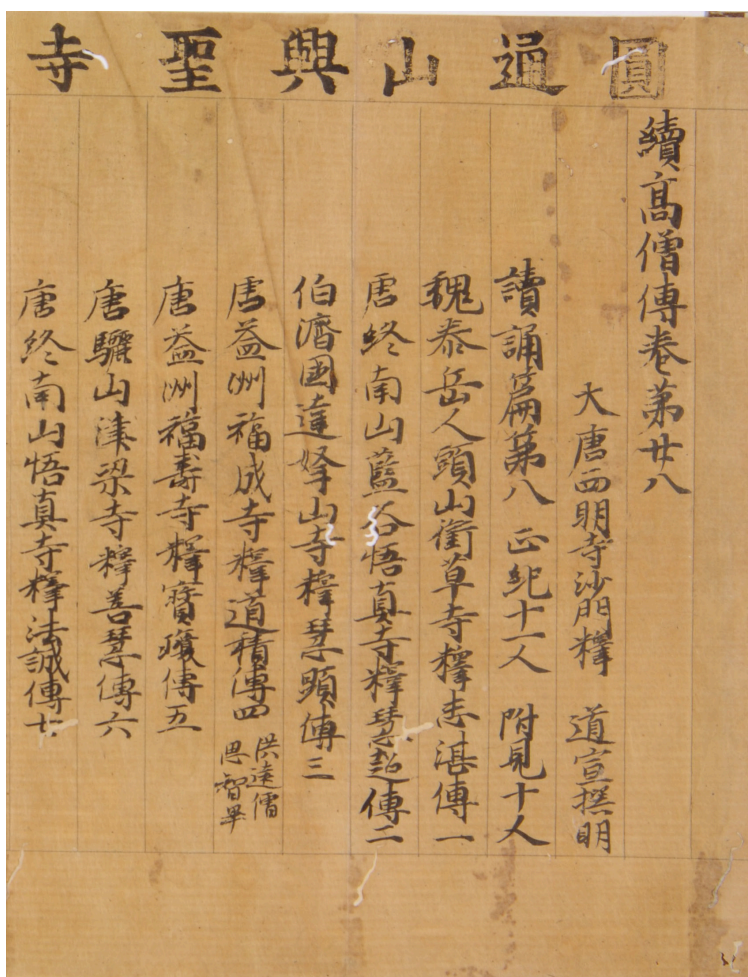 圓通山興聖寺
續高僧傳卷第廿八
大唐西明寺沙門釋 道宣撰明
讀誦篇第八 正紀十一人 附見十人
魏泰岳人頭山銜草寺釋志湛傳一
唐終南山藍谷悟真寺釋慧超傳二
伯濟國達拏山寺釋慧顕傳三
唐益州福成寺釋道積傳四 洪遠儒
恩智畢
唐益州福壽寺釋寶瓊傳五
唐驪山津梁寺釋善慧傳六
唐終南山悟真寺釋法誠傳七